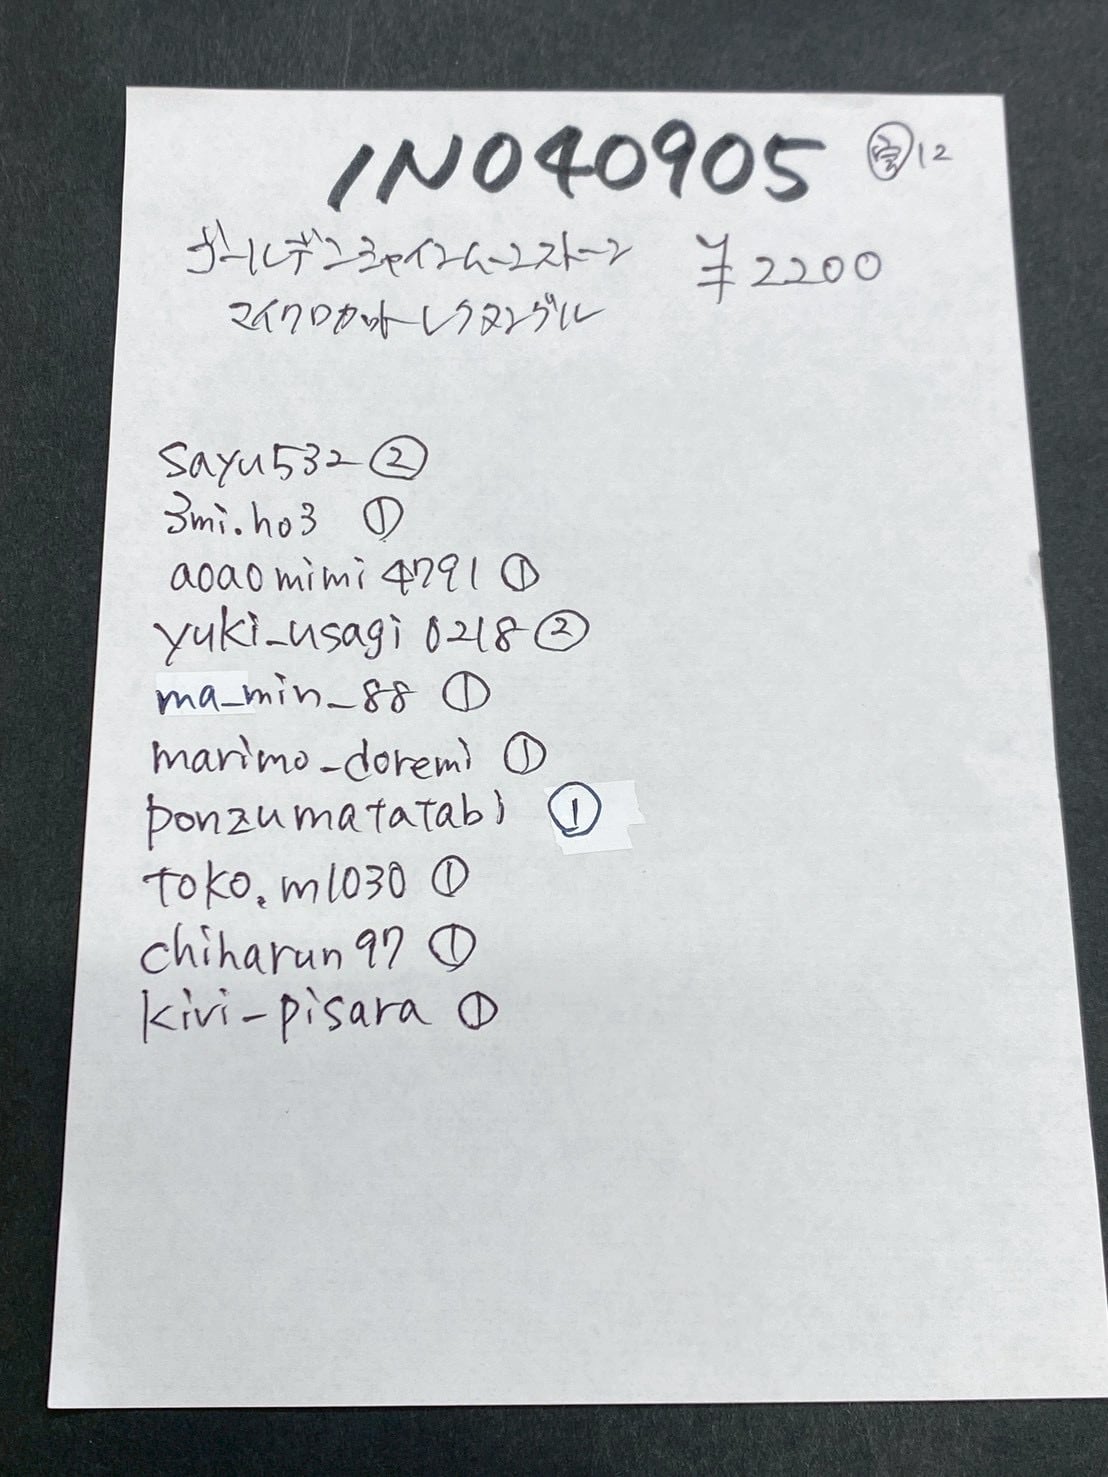 IN040905 ㊪12
ゴールデンシャインムーンストーン ¥2200
マイクロカットレクタングル
sayu532 ②
3mi.ho3 ①
aoaomimi4791 ①
yuki_usagi0218 ②
ma_min_88 ①
marimo_doremi ①
ponzumatatabi ①
toko.m1030 ①
chiharun97 ①
kivi-pisara ①